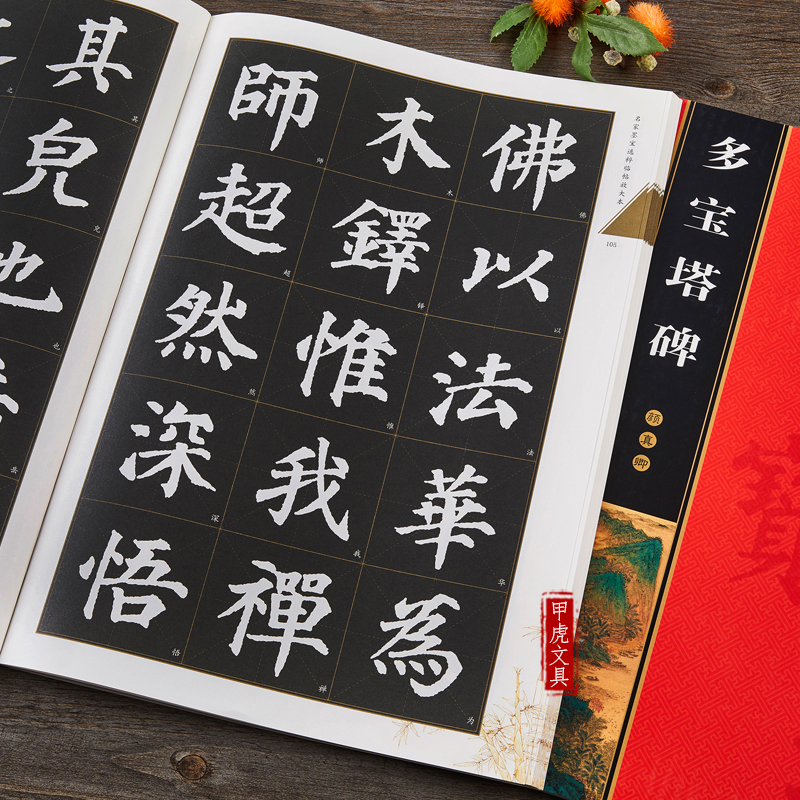 名家墨宝选粹临帖放大本
105
佛以法華為
木鐸惟我禪
師超然深悟
佛以法华为
木铎惟我禅
师超然深悟
其皃也
其
也
岳
之
多宝塔碑
颜真卿
寶
甲虎文具